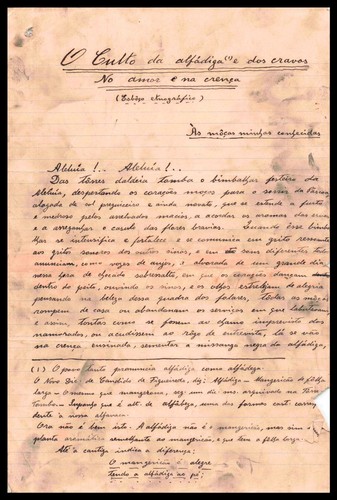 O Culto da alfádiga (1) e dos cravos
No amor e na crença
(Esbôço etnográfico)
Às môças minhas conhecidas
Aleluia!.. Aleluia!..
Das tôrres daldeia tomba o bimbalhar festeiro da
aleluia, despertando os corações moços para o
alagada de sol preguiceiro e ainda novato, que se estende a furto
e medroso pelos macios, a acordar os aromas das
e a arreganhar o das flores bravias. Quando êsse bimba-
lhar se intensifica e fortalece e se comunica em grito
ao grito sonoro dos outros sinos, e em tons diferentes, todos
anunciam, como vozes de anjos, a alvorada de um grande dia,
nessa hora de sobressalto, em que os corações dançam
dentro do peito, ouvindo os sinos, e os olhos estrelejam de alegria
pensando na beleza dessa quadra dos folares, tôdas as môças
rompem de casa ou abandonam os serviços em que
e assim, tontas como se fossem ao imprevisto dos
namorados, ou acudissem ao de encanto, lá se vão
na crença ensinada, sementar a missanga negra da alfádiga,
(1) O povo dante pronuncia alfádiga como alfádega.
O Novo Dic. de Candido de Figueiredo, diz: Alfádiga - Mangericão de fôlha
larga - O mesmo que mangerona, seg. um doc. ms. arquivado na Tôrre
Tombo. - Suponho que é alt. de alfábega, uma das formas cast. corres-
dente à nossa alfavaca.
Ora não é bem isto. A alfádiga não é o mangericão, mas sim a
planta aromática semelhante ao mangericão, e que tem a fôlha larga.
Até a cantiga indica a diferença:
O mangericão é alegre
tendo a alfádiga ao pé;